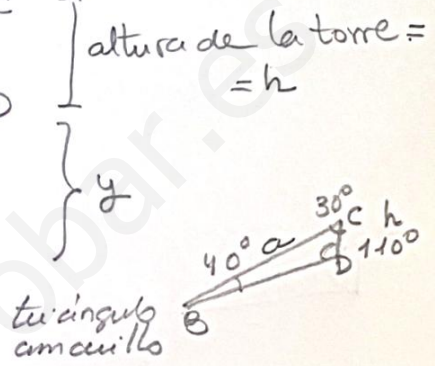 altura de la torre =
= h
y
30º
C h
40º a
D 110º
B
triángulo
amarillo
obar.es